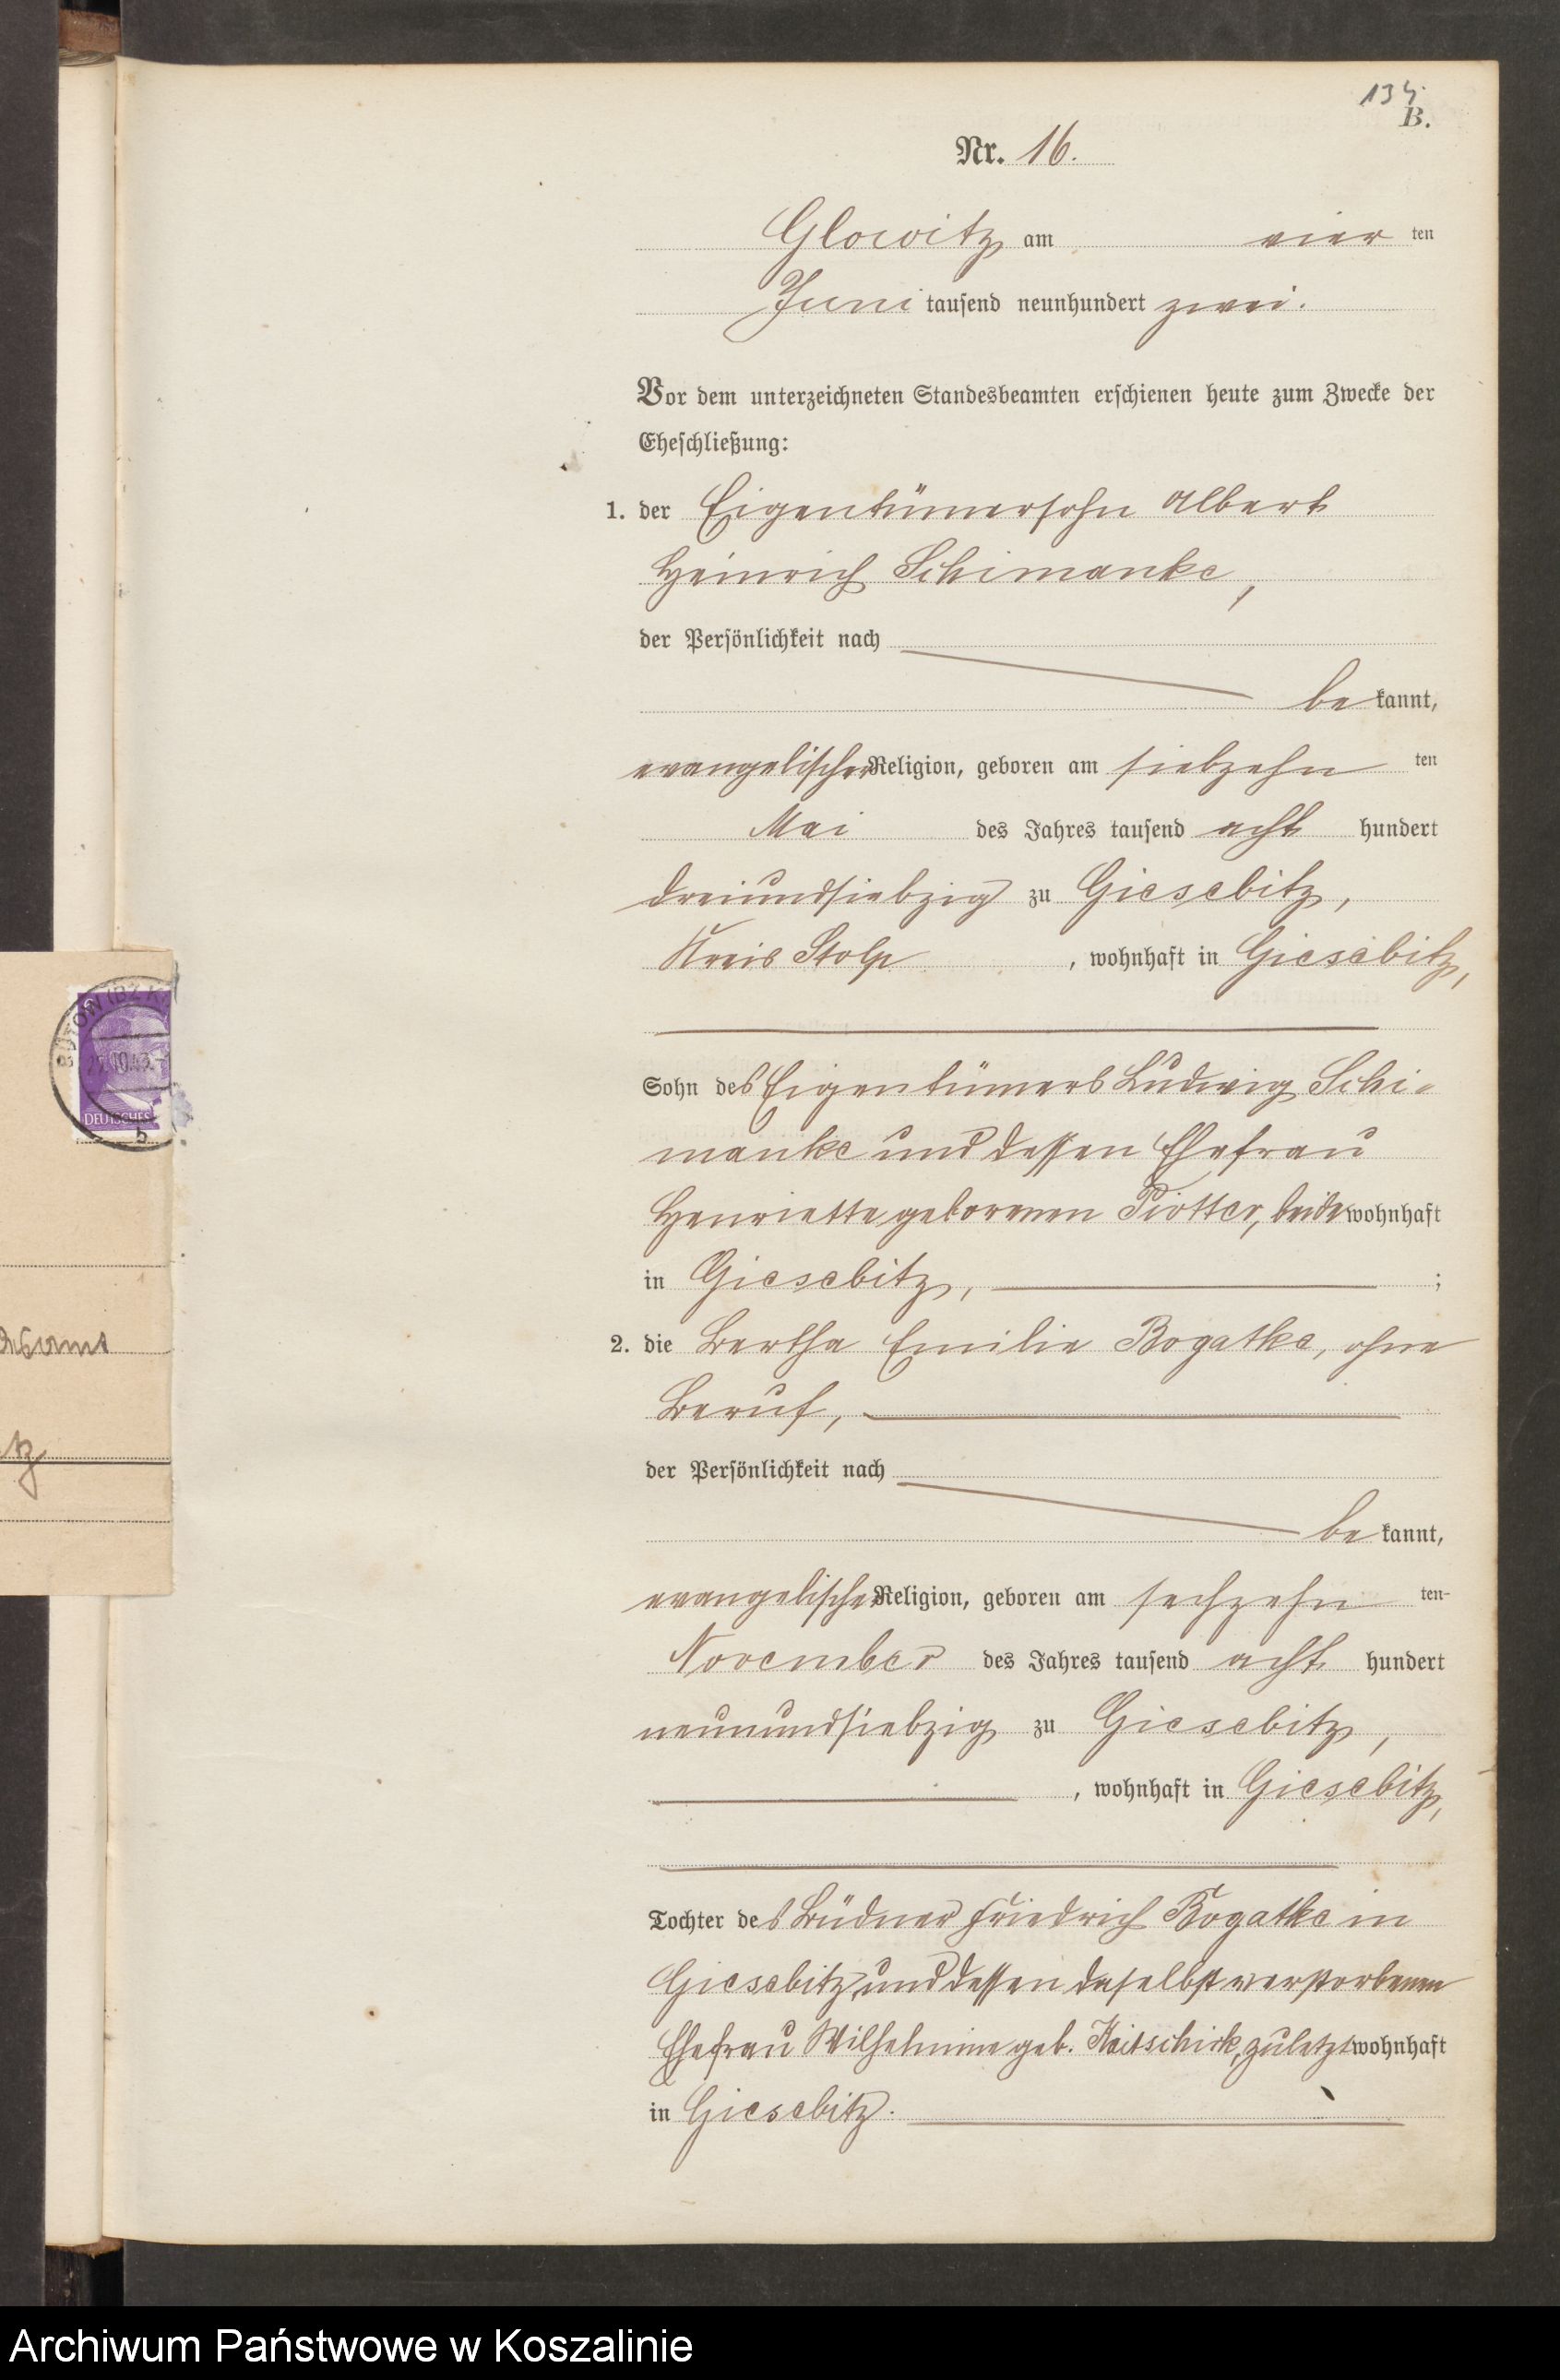 134.
B.
Nr. 16.
Glowitz am vier ten
Juni tausend neunhundert zwei.
Vor dem unterzeichneten Standesbeamten erschienen heute zum Zwecke der
Eheschließung:
1. der Eigentümersohn Albert
Heinrich Schimanke,
der Persönlichkeit nach
be kannt,
evangelischer Religion, geboren am siebzehn ten
Mai des Jahres tausend acht hundert
dreiundsiebzig zu Giesebitz,
Kreis Stolp, wohnhaft in Giesebitz,
Sohn des Eigentümers Ludwig Schi-
manke und dessen Ehefrau
Henriette geborenen Piotter, beide wohnhaft
in Giesebitz, ;
2. die Bertha Emilie Bogatke, ohne
Beruf,
der Persönlichkeit nach
be kannt,
evangelischer Religion, geboren am sechzehn ten
November des Jahres tausend acht hundert
neunundsiebzig zu Giesebitz,
, wohnhaft in Giesebitz,
Tochter des Büdner Friedrich Bogatke in
Giesebitz und dessen daselbst verstorbenen
Ehefrau Wilhelmine geb. Kaitschick, zuletzt wohnhaft
in Giesebitz.
BÜTOW (BZ K
10.43.
DEUTSCHES
b
tz
Archiwum Państwowe w Koszalinie